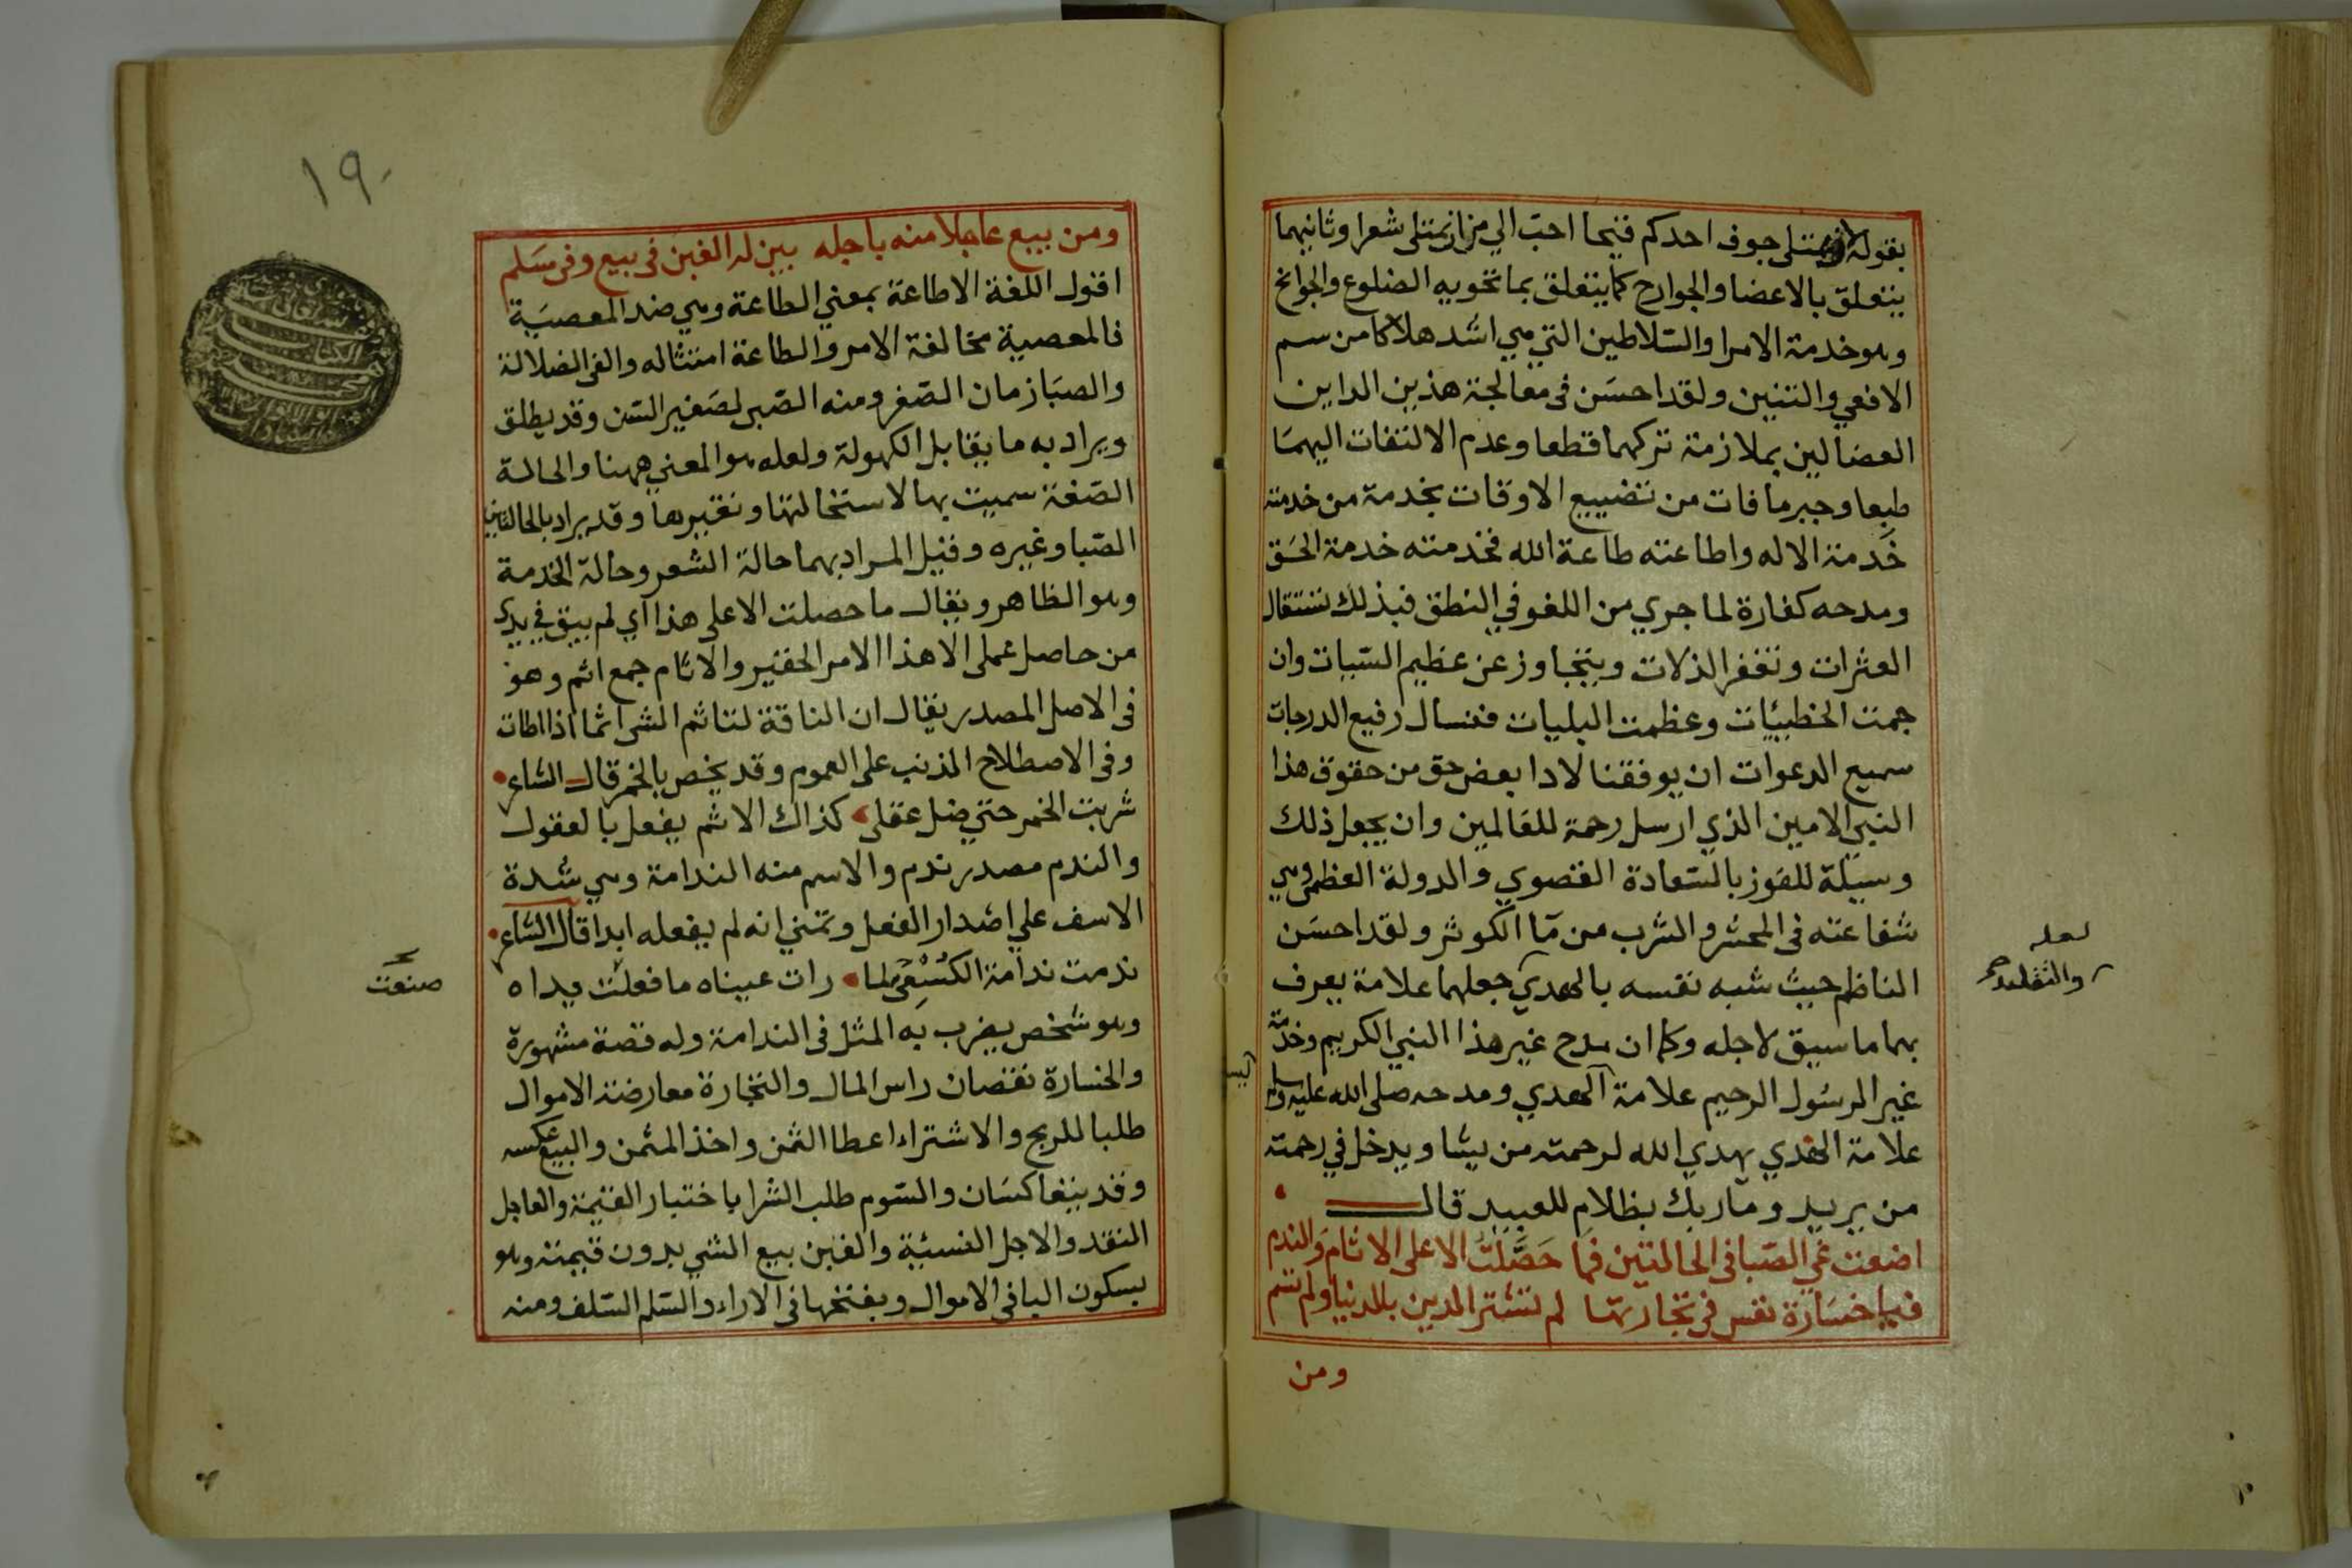 بقوله لان يمتلى جوف احدكم قيحا احب الي من ان يمتلى شعرا وثانيهما
يتعلق بالاعضا والجوارح كما يتعلق بما تحويه الضلوع والجوانح
وهو خدمة الامرا والسلاطين التي هي اشد هلاكا من سم
الافعي والتنين ولقد احسن فى معالجة هذين الداين
العضالين بملازمة تركهما قطعا وعدم الالتفات اليهما
طبعا وجبر ما فات من تضييع الاوقات بخدمة من خدمته
خدمة الاله واطاعته طاعة الله فخدمته خدمة الحق
ومدحه كفارة لما جري من اللغو في النطق فبذلك تستقال
العثرات وتغفر الذلات ويتجاوز عن عظيم السيات وان
جمت الخطيئيات وعظمت البليات فنسال رفيع الدرجات
سميع الدعوات ان يوفقنا لادا بعض حق من حقوق هذا
النبي الامين الذي ارسل رحمة للعالمين وان يجعل ذلك
وسيلة للفوز بالسعادة القصوي والدولة العظمى وهي
شفاعته فى المحشر والشرب من ما الكوثر ولقد احسن
الناظم حيث شبه نفسه بالهدي جعلهما علامة يعرف
بهما ما سيق لاجله وكما ان مدح غير هذا النبي الكريم وخدمة
غير الرسول الرحيم علامة الهدي ومدحه صلى الله عليه وسلم
علامة الهدي يهدي الله لرحمته من يشا ويدخل في رحمته
من يريد وما ربك بظلام للعبيد قال
اضعت غي الصبا فى الحالتين فما حَصَّلتُ الا على الاثام والندم
فيا خسارة نفس فى تجارتها لم تشتر الدين بالدنيا ولم تسم
ومن
لعله
والتقليد
١٩
ومن يبيع عاجلا منه باجله يبين له الغبن فى بيع وفى سلم
اقول اللغة الاطاعة بمعني الطاعة وهي ضد المعصية
فالمعصية مخالفة الامر والطاعة امتثاله والغى الضلالة
والصبا زمان الصغر ومنه الصبى لصغير السن وقد يطلق
ويراد به ما يقابل الكهولة ولعله هو المعني ههنا والحالة
الصفة سميت بها لاستحالتها وتغيرها وقد يراد بالحالتين
الصبا وغيره وقيل المراد بهما حالة الشعر وحالة الخدمة
وهو الظاهر ويقال ما حصلت الا على هذا اي لم يبق في يدي
من حاصل عملى الا هذا الامر الحقير والاثام جمع اثم وهو
فى الاصل المصدر يقال ان الناقة لتاثم المشى اثما اذا ابطات
وفى الاصطلاح المذنب على العموم وقد يخص بالخمر قال الشاعر
شربت الخمر حتي ضل عقلى كذاك الاثم يفعل بالعقول
والندم مصدر ندم والاسم منه الندامة وهي شدة
الاسف علي اصدار الفعل وتمني انه لم يفعله ابدا قال الشاعر
ندمت ندامة الكُسَعِىّ لما رات عيناه ما فعلت يداه
صنعت
وهو شخص يضرب به المثل فى الندامة وله قصة مشهورة
والخسارة نقصان راس المال والتجارة معارضة الاموال
طلبا للربح والاشتراء اعطا الثمن واخذ المثمن والبيع عكسه
وقد يتعاكسان والسوم طلب الشرا باختبار القيمة والعاجل
النقد والاجل النسيئة والغبن بيع الشي بدون قيمته وهو
بسكون البا فى الاموال وبفتحها فى الاراء والسلم السلف ومنه